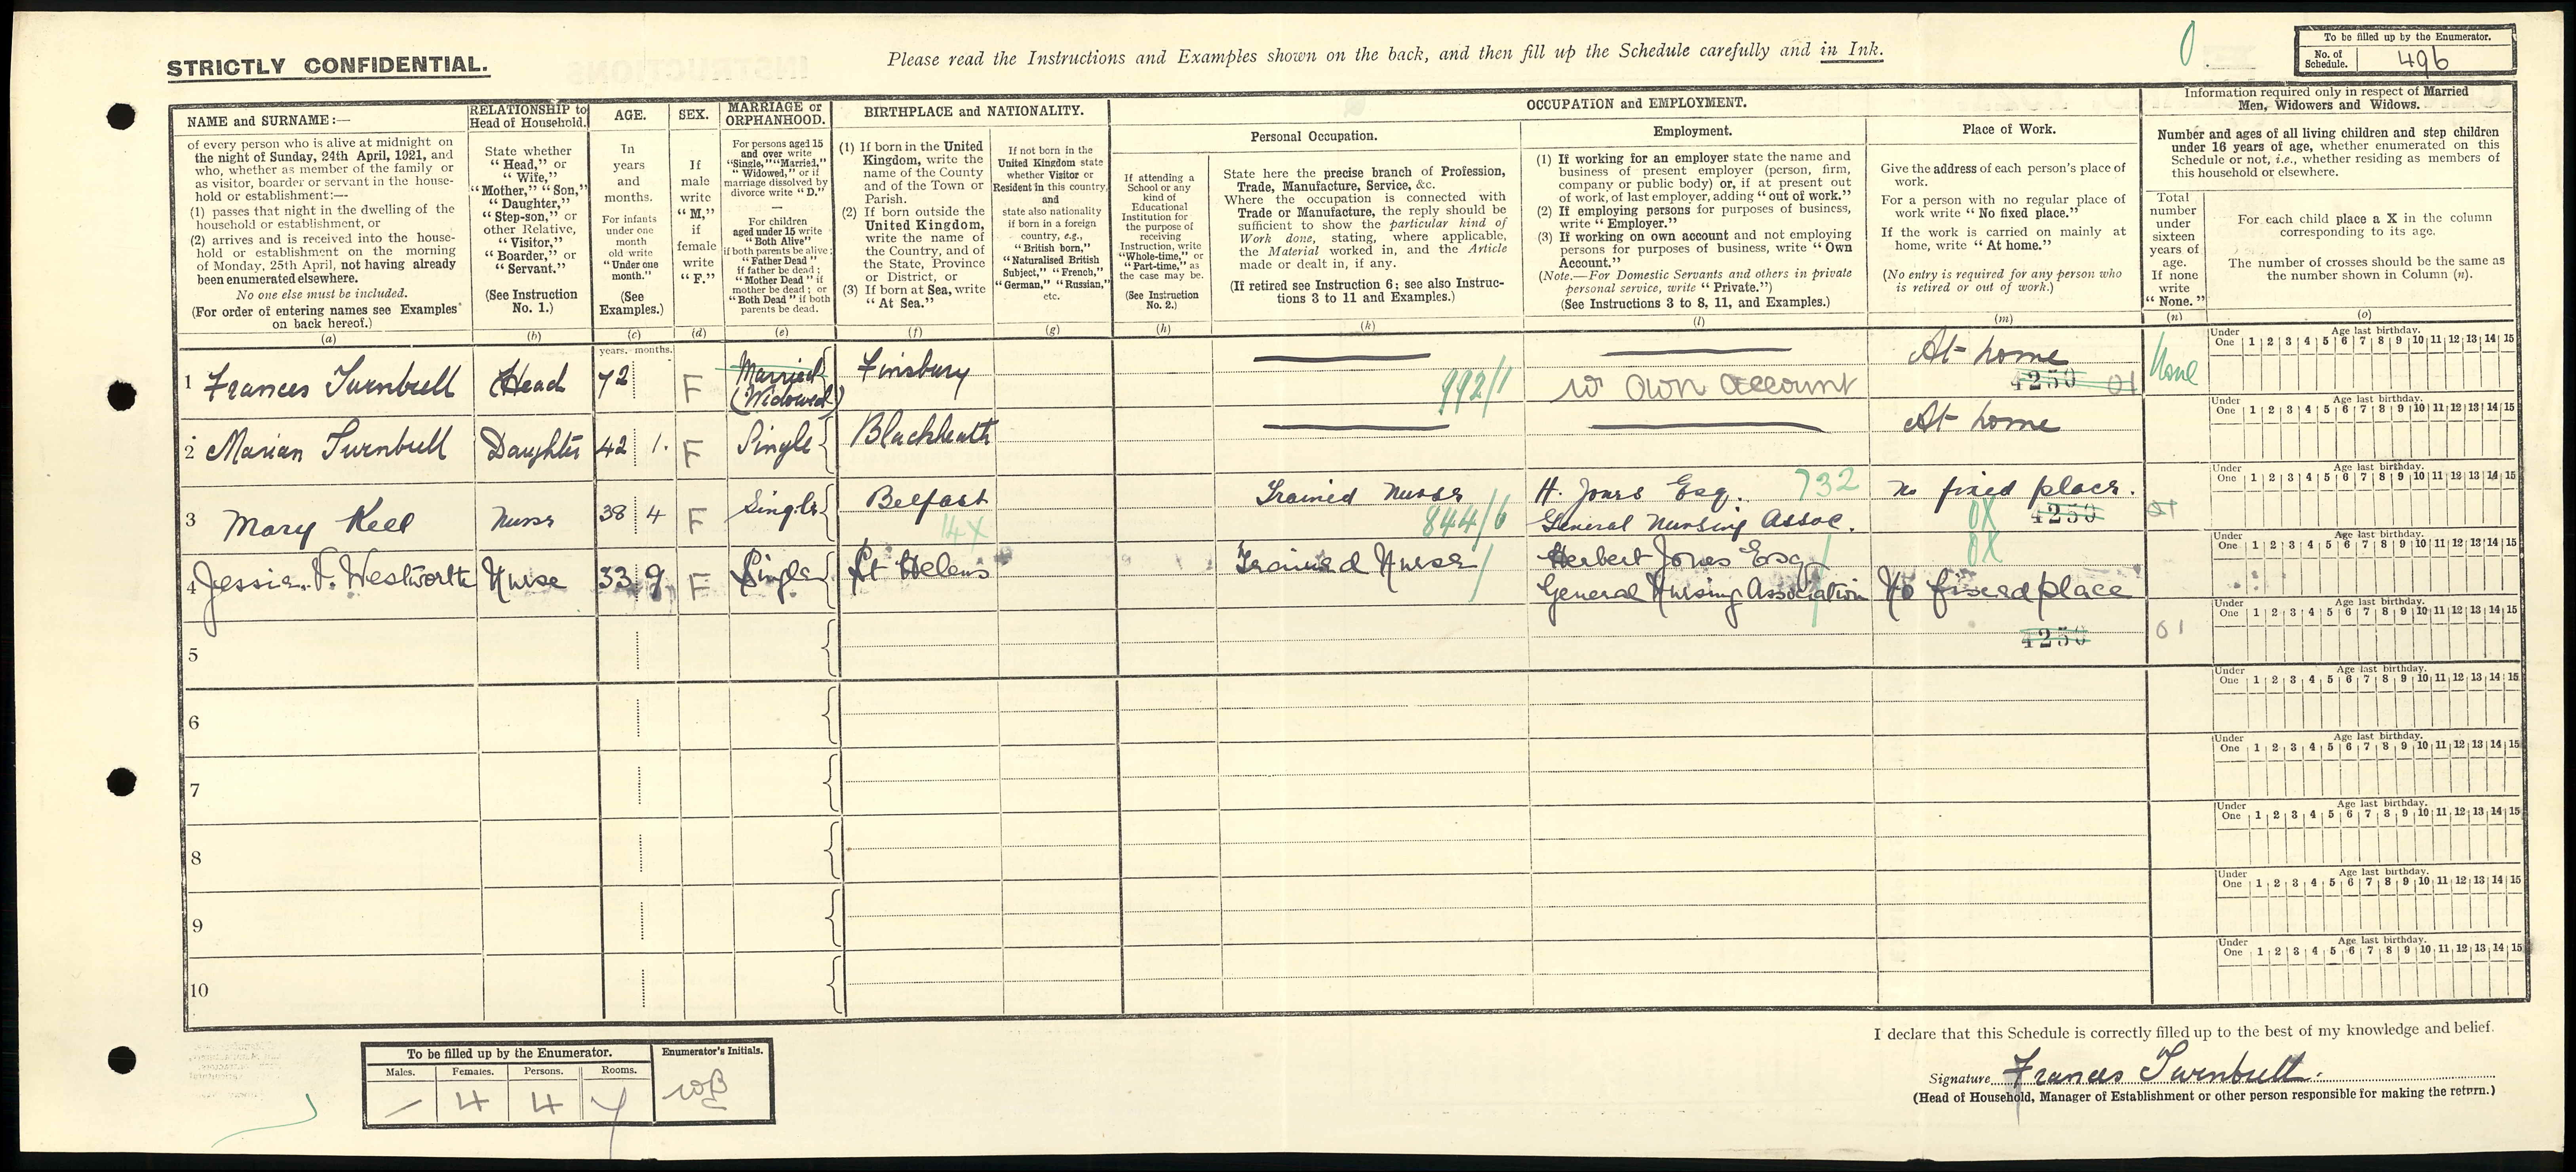 STRICTLY CONFIDENTIAL.
Please read the Instructions and Examples shown on the back, and then fill up the Schedule carefully and in Ink.
0
To be filled up by the Enumerator.
No. of Schedule. 496
NAME and SURNAME:—
of every person who is alive at midnight on
the night of Sunday, 24th April, 1921, and
who, whether as member of the family or
as visitor, boarder or servant in the house-
hold or establishment:—
(1) passes that night in the dwelling of the
household or establishment, or
(2) arrives and is received into the house-
hold or establishment on the morning
of Monday, 25th April, not having already
been enumerated elsewhere.
No one else must be included.
(For order of entering names see Examples
on back hereof.)
(a)
RELATIONSHIP to
Head of Household.
State whether
"Head," or
"Wife,"
"Mother," "Son,"
"Daughter,"
"Step-son," or
other Relative,
"Visitor,"
"Boarder," or
"Servant."
(See Instruction
No. 1.)
(b)
AGE.
In
years
and
months.
For infants
under one
month
old write
"Under one
month."
(See
Examples.)
(c)
SEX.
If
male
write
"M,"
if
female
write
"F."
(d)
MARRIAGE or
ORPHANHOOD.
For persons aged 15
and over write
"Single," "Married,"
"Widowed," or if
marriage dissolved by
divorce write "D."
—
For children
aged under 15 write
"Both Alive"
if both parents be alive;
"Father Dead"
if father be dead;
"Mother Dead" if
mother be dead; or
"Both Dead" if both
parents be dead.
(e)
BIRTHPLACE and NATIONALITY.
(1) If born in the United
Kingdom, write the
name of the County
and of the Town or
Parish.
(2) If born outside the
United Kingdom,
write the name of
the Country, and of
the State, Province
or District, or
(3) If born at Sea, write
"At Sea."
(f)
If not born in the
United Kingdom state
whether Visitor or
Resident in this country,
and
state also nationality
if born in a foreign
country, e.g.,
"British born,"
"Naturalised British
Subject," "French,"
"German," "Russian,"
etc.
(g)
OCCUPATION and EMPLOYMENT.
If attending a
School or any
kind of
Educational
Institution for
the purpose of
receiving
Instruction, write
"Whole-time," or
"Part-time," as
the case may be.
(See Instruction
No. 2.)
(h)
Personal Occupation.
State here the precise branch of Profession,
Trade, Manufacture, Service, &c.
Where the occupation is connected with
Trade or Manufacture, the reply should be
sufficient to show the particular kind of
Work done, stating, where applicable,
the Material worked in, and the Article
made or dealt in, if any.
(If retired see Instruction 6; see also Instruc-
tions 3 to 11 and Examples.)
(k)
Employment.
(1) If working for an employer state the name and
business of present employer (person, firm,
company or public body) or, if at present out
of work, of last employer, adding "out of work."
(2) If employing persons for purposes of business,
write "Employer."
(3) If working on own account and not employing
persons for purposes of business, write "Own
Account."
(Note.—For Domestic Servants and others in private
personal service, write "Private.")
(See Instructions 3 to 8, 11, and Examples.)
(l)
Place of Work.
Give the address of each person's place of
work.
For a person with no regular place of
work write "No fixed place."
If the work is carried on mainly at
home, write "At home."
(No entry is required for any person who
is retired or out of work.)
(m)
Information required only in respect of Married
Men, Widowers and Widows.
Number and ages of all living children and step children
under 16 years of age, whether enumerated on this
Schedule or not, i.e., whether residing as members of
this household or elsewhere.
Total
number
under
sixteen
years of
age.
If none
write
"None."
(n)
For each child place a X in the column
corresponding to its age.
The number of crosses should be the same as
the number shown in Column (n).
(o)
years. months.
1 Frances Turnbull Head 72 F Married (Widowed) Finsbury 992/1 Own account At home 4250 01 None
2 Marian Turnbull Daughter 42 1. F Single Blackheath At home
3 Mary Kell Nurse 38 4 F Single Belfast 14X Trained Nurse 844/6 H. Jones Esq. 732 General Nursing Assoc. No fixed place. 0X 4250 01
4 Jessie Westworth Nurse 33 9 F Single St Helens Trained Nurse Herbert Jones Esq General Nursing Association 0X No fixed place
5 4250 01
6
7
8
9
10
Under One 1 2 3 4 5 6 7 8 9 10 11 12 13 14 15 Age last birthday.
Under One 1 2 3 4 5 6 7 8 9 10 11 12 13 14 15 Age last birthday.
Under One 1 2 3 4 5 6 7 8 9 10 11 12 13 14 15 Age last birthday.
Under One 1 2 3 4 5 6 7 8 9 10 11 12 13 14 15 Age last birthday.
Under One 1 2 3 4 5 6 7 8 9 10 11 12 13 14 15 Age last birthday.
Under One 1 2 3 4 5 6 7 8 9 10 11 12 13 14 15 Age last birthday.
Under One 1 2 3 4 5 6 7 8 9 10 11 12 13 14 15 Age last birthday.
Under One 1 2 3 4 5 6 7 8 9 10 11 12 13 14 15 Age last birthday.
Under One 1 2 3 4 5 6 7 8 9 10 11 12 13 14 15 Age last birthday.
Under One 1 2 3 4 5 6 7 8 9 10 11 12 13 14 15 Age last birthday.
To be filled up by the Enumerator.
Males. Females. Persons. Rooms.
— 4 4
Enumerator's Initials.
WB
I declare that this Schedule is correctly filled up to the best of my knowledge and belief.
Signature Frances Turnbull.
(Head of Household, Manager of Establishment or other person responsible for making the return.)